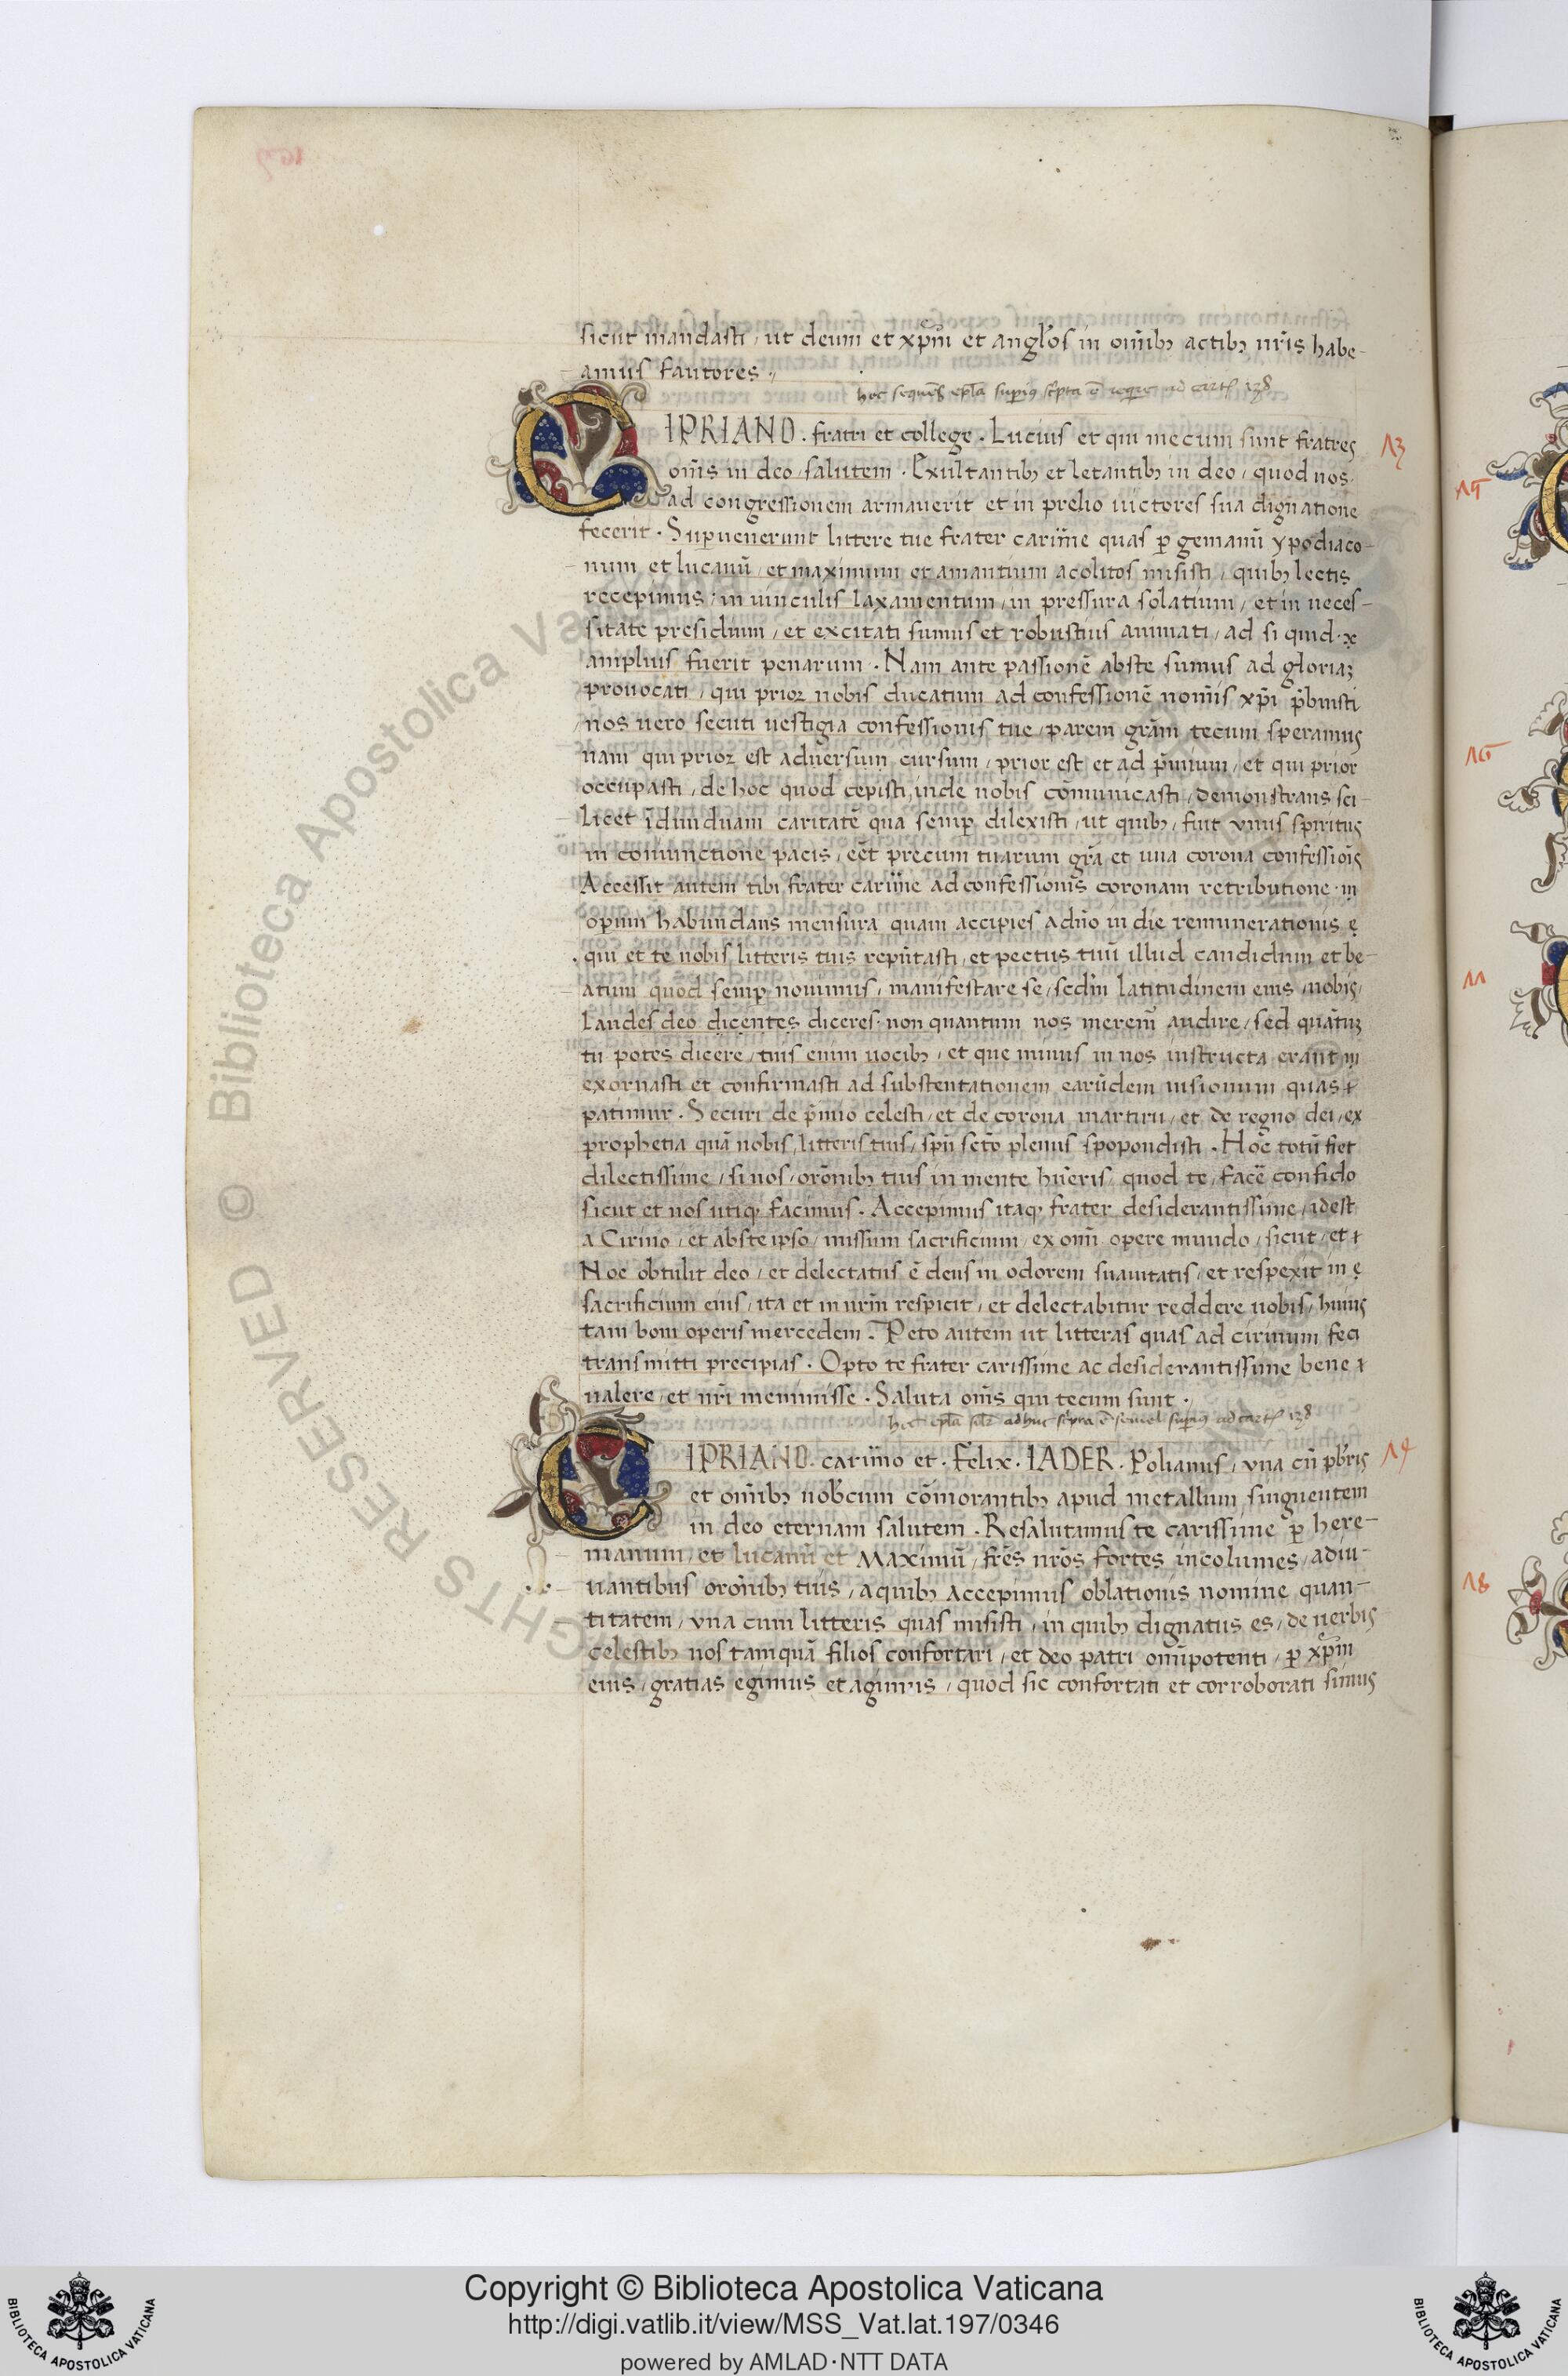 sicut mandasti, ut deum et xp̄m et angl̄os in om̄ib; actib; nr̄is habe-
amus fautores.
hec sequēs ep̄la superius scripta ē
CIPRIANO. fratri et college. Lucius et qui mecum sunt fratres
om̄s in deo salutem. Exultantib; et letantib; in deo, quod nos
ad congressionem armauerit et in prelio uictores sua dignatione
fecerit. Supuenerunt littere tue frater carim̄e quas p̱ gemanū ypodiaco-
num et lucanū, et maximum et amantium acolitos misisti, quib; lectis
recepimus, in uinculis laxamentum, in pressura solatium, et in neces-
sitate presidium, et excitati sumus et robustius animati, ad si quid.
amplius fuerit penarum. Nam ante passionē abste sumus ad gloriaz
prouocati, qui prior nobis ducatum ad confessionē nom̄is xp̄i p̄buisti
nos uero secuti uestigia confessionis tue, parem grām tecum speramus
nam qui prior est aduersum cursum, prior est et ad p̄mium, et qui prior
occupasti, de hoc quod cepisti, inde nobis cōmunicasti, demonstrans sci-
licet īdiuiduam caritatē qua semp̱ dilexisti, ut quib; fuit vnus spiritus
in coniunctione pacis, eēt precum tuarum grā et una corona confessiōis
Accessit autem tibi frater carim̄e ad confessionis coronam retributione
operum habundans mensura quam accipies adn̄o in die remunerationis
qui et te nobis litteris tuis repn̄tasti, et pectus tuū illud candidum et be-
atum quod semp̱ nouimus, manifestare se, sedm̄ latitudinem eius nobis,
laudes deo dicentes diceres. non quantum nos meremr̄ audire, sed quātuz
tu potes dicere, tuis enim uocib;, et que minus in nos instructa erant
exornasti et confirmasti ad substentationem earūdem uisionum quas
patimur. Securi de p̄mio celesti, et de corona martiru, et de regno dei, ex
prophetia quā nobis, litteris tuis, spū sctō plenus spopondisti. Hoc totū fiet
dilectissime, si nos, orōnib; tuis in mente hūeris, quod te, facē confido
sicut et nos utiq; facimus. Accepimus itaq; frater desiderantissime, idest
a Cirino, et abste ipso, missum sacrificium, ex omī opere mundo, sicut, et
Noe obtulit deo, et delectatus ē deus in odorem suauitatis, et respexit in
sacrificium eius, ita et in nrm̄ respicit, et delectabitur reddere uobis, huius
tam boni operis mercedem. Peto autem ut litteras quas ad cirinum feci
transmitti precipias. Opto te frater carissime ac desiderantissime bene
ualere, et nr̄i meminisse. Saluta om̄s qui tecum sunt.
hec ep̄la adhuc scripta ē semel superius
CIPRIANO. carim̄o et. Felix. IADER. Polianus, vna cū pb̄ris
et om̄ib; nob̄cum cōmorantib; apud metallum singuentem
in deo eternam salutem. Resalutamus te carissime p̱ here-
manum, et lucanū et Maximū, frēs nrōs, fortes incolumes, adiu-
uantibus orōnib; tuis, aquib; accepimus oblationis nomine quan-
titatem, vna cum litteris quas misisti, in quib; dignatus es, de uerbis
celestib; nos tamquā filios confortari, et deo patri om̄ipotenti, p̱ xp̄m
eius, gratias egimus et agimus, quod sic confortati et corroborati simus
13
14
15
16
18
Copyright © Biblioteca Apostolica Vaticana
http://digi.vatlib.it/view/MSS_Vat.lat.197/0346
powered by AMLAD·NTT DATA
BIBLIOTECA APOSTOLICA VATICANA
BIBLIOTECA APOSTOLICA VATICANA